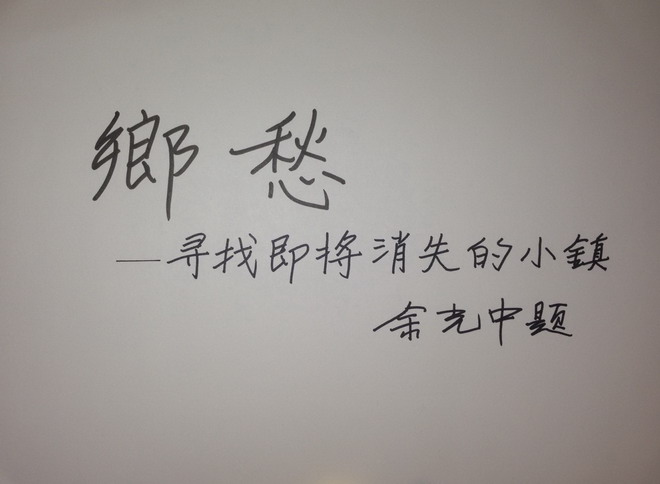 鄉愁
——寻找即将消失的小鎮
余光中题